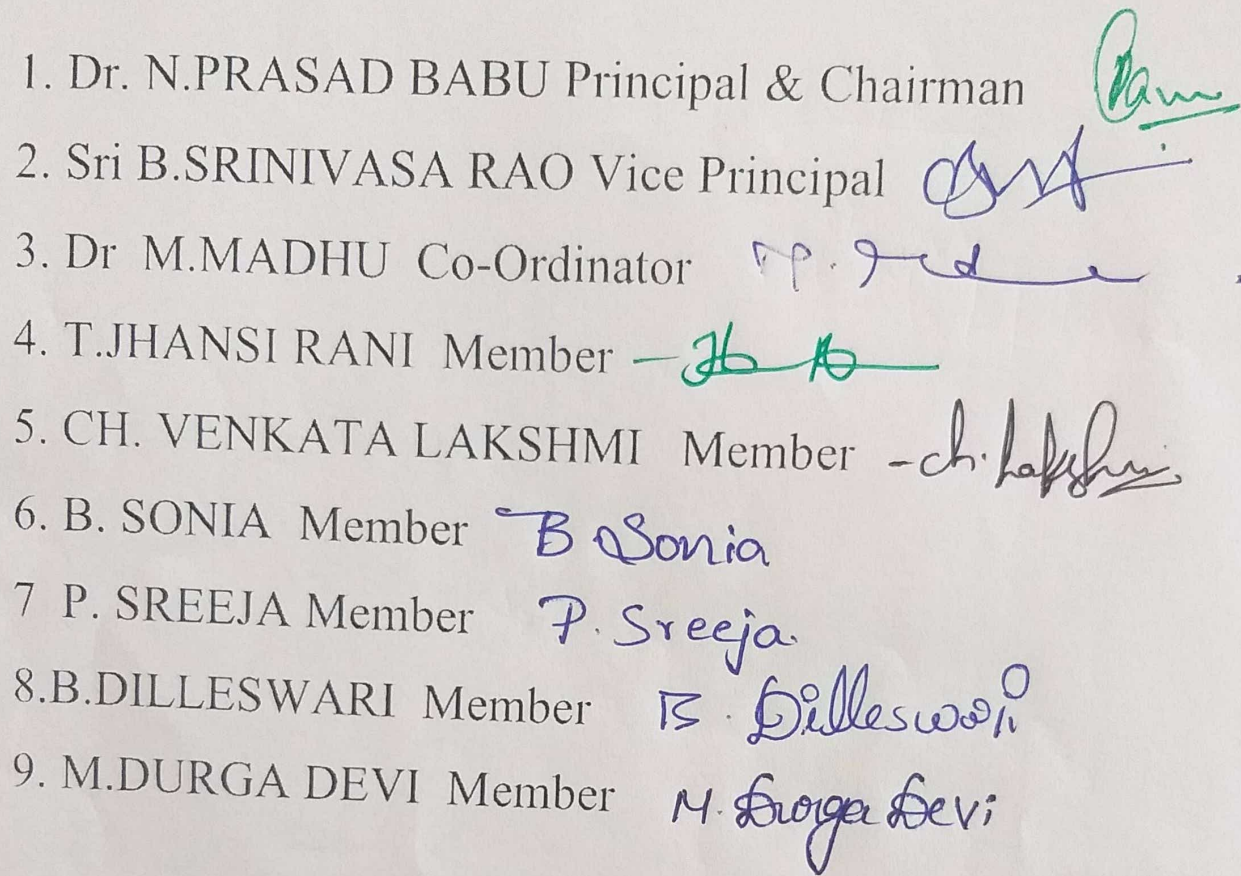 1. Dr. N.PRASAD BABU Principal & Chairman
2. Sri B.SRINIVASA RAO Vice Principal
3. Dr M.MADHU Co-Ordinator
4. T.JHANSI RANI Member -
5. CH. VENKATA LAKSHMI Member - ch. Lakshmi
6. B. SONIA Member B Sonia
7 P. SREEJA Member P. Sreeja.
8.B.DILLESWARI Member B. Dilleswari
9. M.DURGA DEVI Member M. Durga Devi